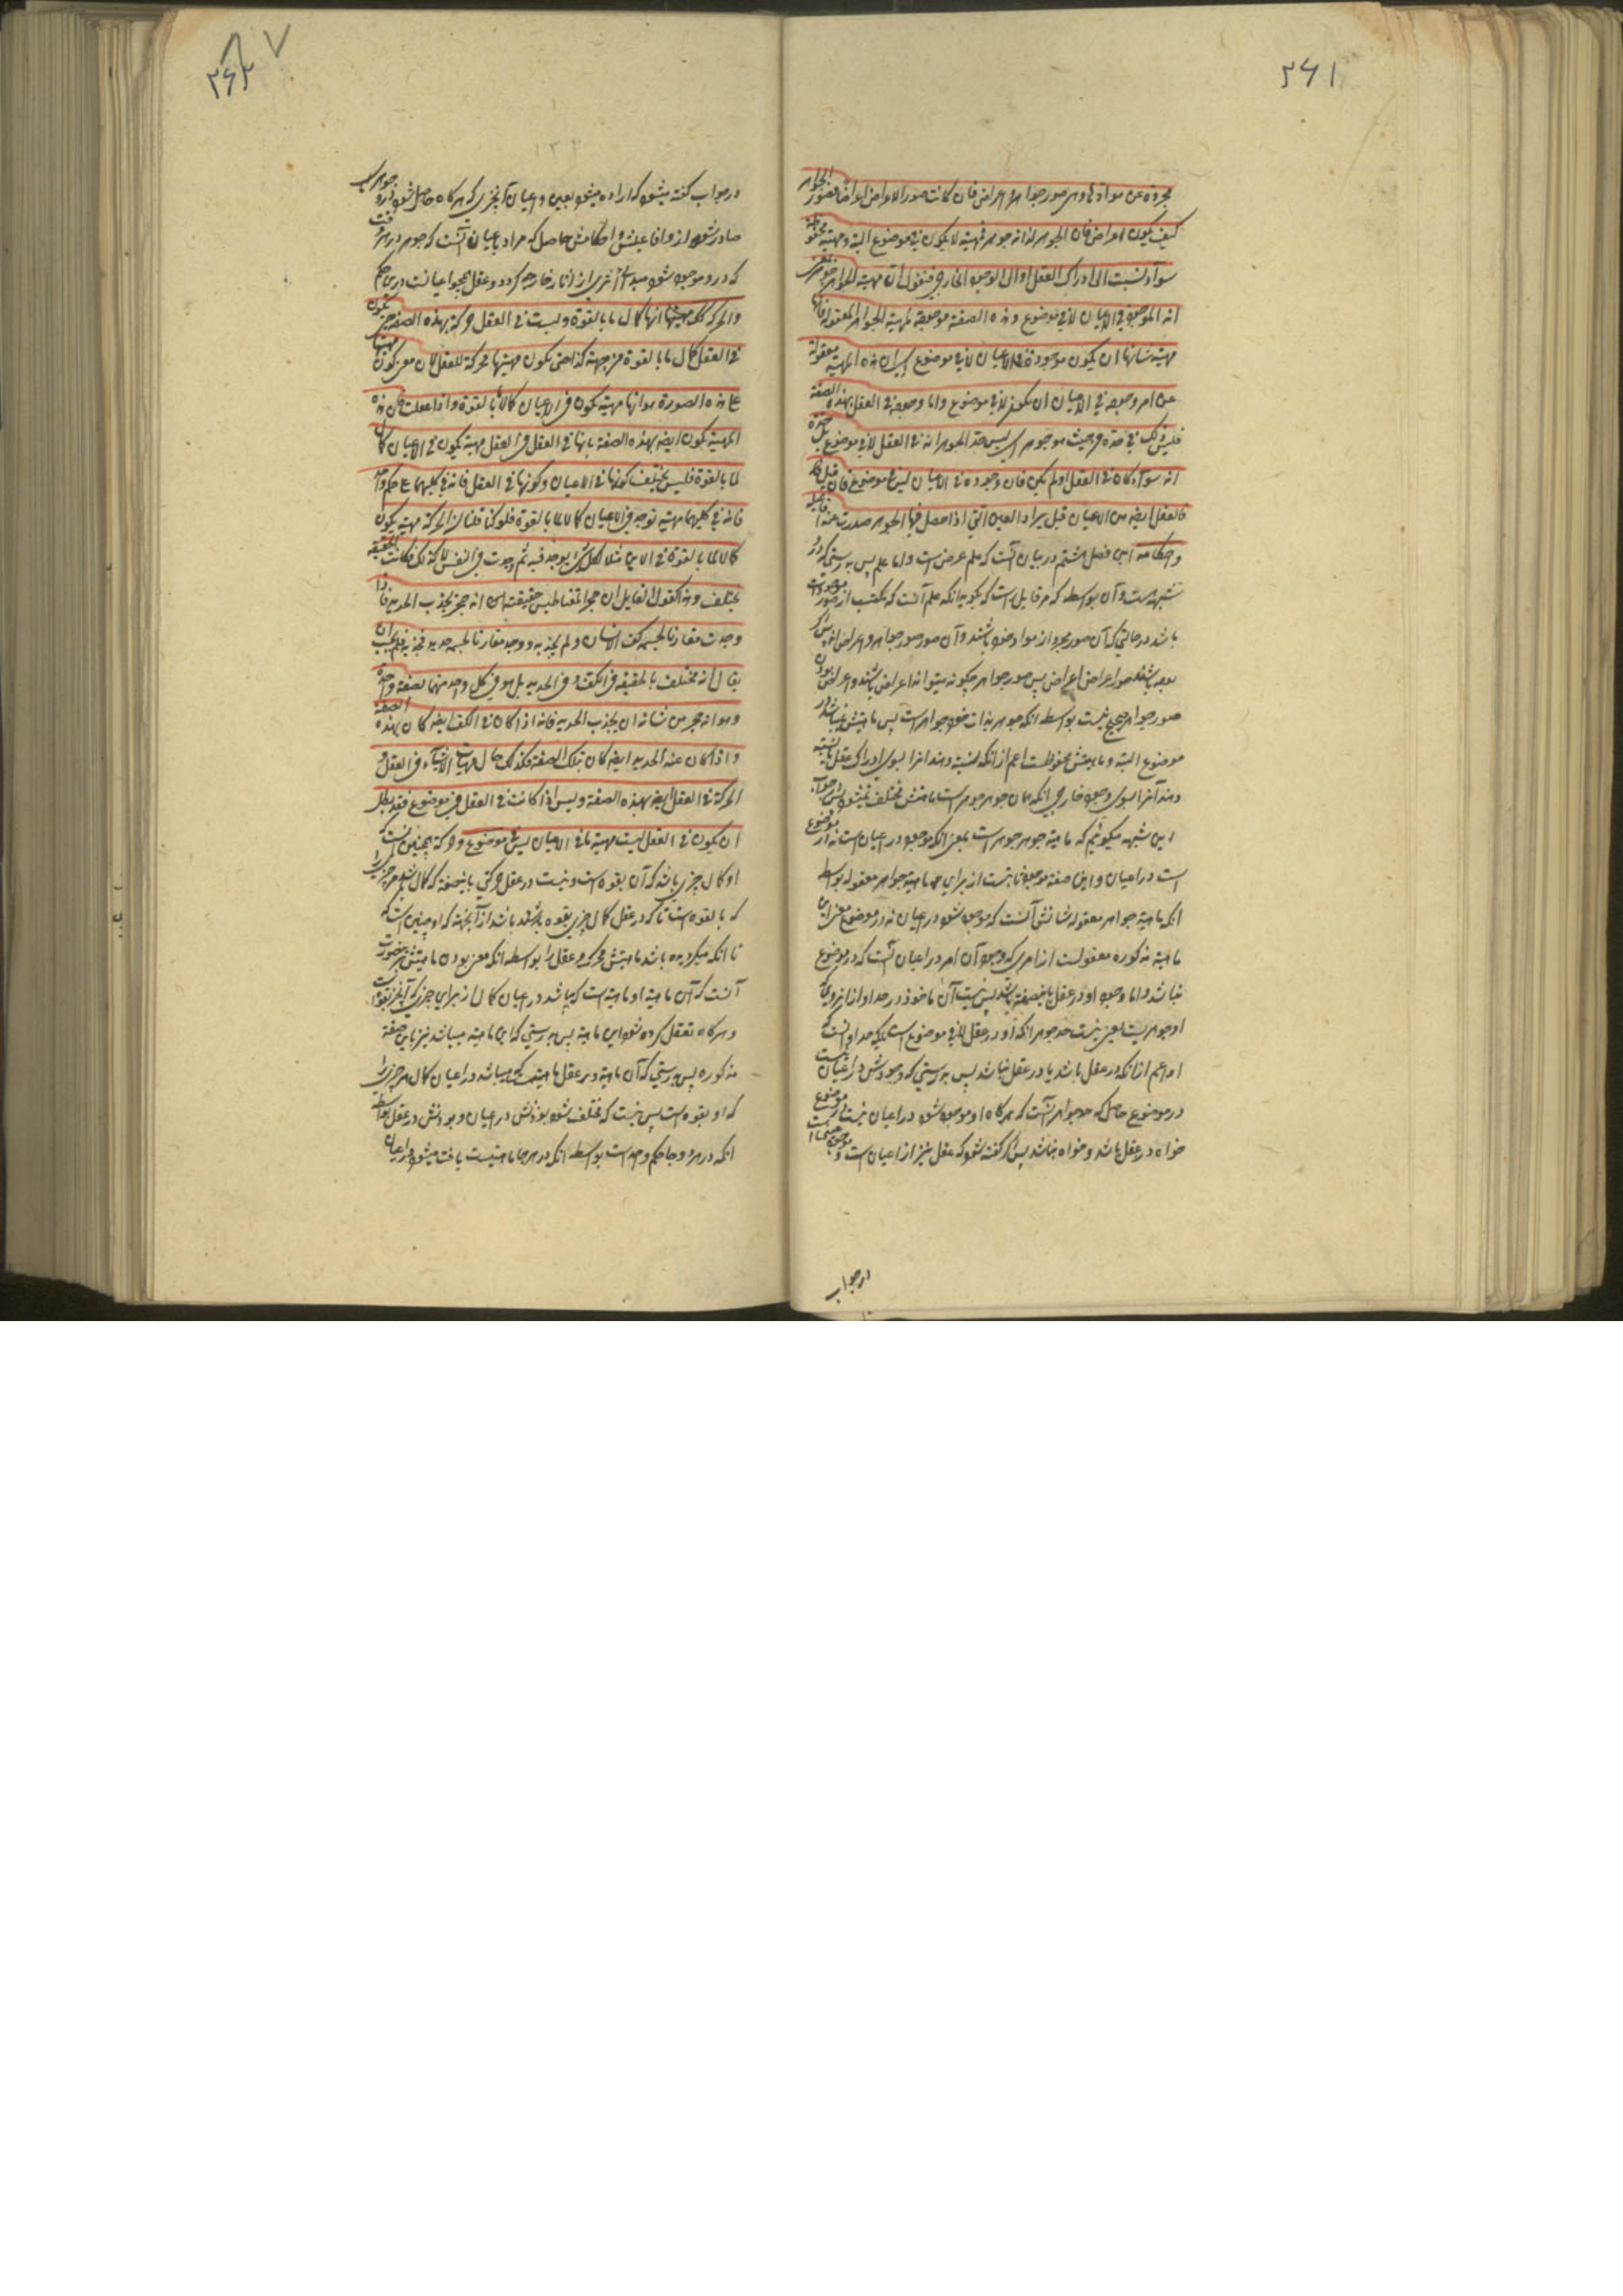 ۲۶۱
مجردة عن موادها وهی صور جواهر و اعراض فان کانت صور الاعراض اعراضا فصور الجواهر
کیف یکون اعراضا فان الجوهر لذاته جوهر فمهیته لا یکون فی موضوع البتة و مهیته محفوظة
سواء نسبت الی ادراک العقل او الی الوجود الخارجی فنقول ان مهیة الجواهر جوهر بمعنی
انه الموجود فی الاعیان لا فی موضوع و هذه الصفة موجودة لمهیة الجواهر المعقولة فانها
مهیة شانها ان یکون موجودة فی الاعیان لا فی موضوع ای ان هذه المهیة معقولة
عن امر وجوده فی الاعیان ان یکون لا فی موضوع و اما وجوده فی العقل بهذه الصفة
فلیس ذلک فی حده من حیث هو جوهر ای لیس حد الجوهر انه فی العقل لا فی موضوع بل حده
انه سواء کان فی العقل او لم یکن فان وجوده فی الاعیان لیس فی موضوع فان قیل
فالعقل ایضا من الاعیان قیل یراد بالعین التی اذا حصل فیها الجوهر صدرت عنه افاعیله
و احکامه این فصل هشتم در بیان آنست که علم عرض است و اما علم پس بدرستی که در
شبهه است و آن بواسطه که هر قایل راست که بگوید انکه علم آنست که مکتسب از صور موجودات
باشد در حالتی که آن صور مجرد از مواد خود باشند و آن صور صور جواهر و اعراض اند پس اگر
بوده باشند صور اعراض اعراض پس صور جواهر چگونه میتواند اعراض باشند و اعراض بودن
صور جواهر صحیح نیست بواسطه انکه جوهر بذات خود جوهر است پس ماهیتش نمیباشد در
موضوع البته و ماهیتش محفوظست اعم از انکه نسبت دهند انرا بسوی ادراک عقل یا نسبت
دهند آنرا بسوی وجود خارجی انکه همان جوهر جوهر است ماهیتش مختلف نمیشود پس جواب
این شبهه میگوئیم که ماهیة جوهر جوهر است بمعنی انکه موجود در اعیان است نه در موضوع
است در اعیان و این صفت موجود ثابتست از برای ماهیة جواهر معقوله بواسطه
انکه ماهیة جواهر معقوله شانش آنست که موجود شود در اعیان نه در موضوع یعنی این
ماهیة مذکوره معقولست از امری که وجود آن امر در اعیان آنست که در موضوع
نباشد و اما وجود او در عقل باینصفت باشد پس نیست آن ماخوذ در حد او از انروی که
او جوهریست یعنی نیست حد جوهر انکه او در عقل لا فی موضوع است بلکه حد او آنست که
او اعم از انکه در عقل باشد یا در عقل نباشد پس بدرستی که وجودش در اعیان نیست
در موضوع حاصل که حد جواهر آنست که هر گاه او موجود شود در اعیان نیست در موضوع
خواه در عقل باشد و خواه نباشد پس اگر گفته شود که عقل نیز از اعیان است و
در جواب
۲۶۲
در جواب گفته میشود که اراده میشود بعین و اعیان آنچیزی که هر گاه حاصل شود در او جوهر
صادر شود از و افاعیلش و احکامش حاصل که مراد باعیان آنست که جوهر در هر وقت
که در و موجود شود مبدء اثری از آثار خارجیه گردد و عقل نه چنین است درین حکم
والحرکة کذلک مهیتها انها کمال ما بالقوة و لیست فی العقل حرکة بهذه الصفة حتی یکون
فی العقل کمال ما بالقوة من جهة کذا حتی یکون مهیتها محرکة للعقل لان معنی کون مهیتها
علی هذه الصورة هو انها مهیة یکون فی الاعیان کمالا ما بالقوة و اذا عقلت فان هذه
المهیة یکون ایضا بهذه الصفة فانها فی العقل مهیة یکون فی الاعیان کمال
لما بالقوة فلیس یختلف کونها فی الاعیان و کونها فی العقل فانه فی کلیهما علی حکم واحد
فانه فی کلیهما مهیة توجد فی الاعیان کمالا لما بالقوة فلو کنا قلنا ان الحرکة مهیة یکون
کمالا لما بالقوة فی الاین مثلا لکل شیء یوجد فیه ثم وجدت فی النفس لا کذلک لکانت الحقیقة
یختلف و هذا کقول القایل ان حجر المغناطیس حقیقته انه حجر یجذب الحدید فاذا
وجدت مقارنا لجسمیة کف الانسان و لم یجذبه و وجد مقارنا لجسمیة حدید فجذبه فلم یجب ان
یقال انه مختلف بالحقیقة فی الکف و فی الحدید بل هو فی کل واحد منهما بصفة واحدة
و هو انه حجر من شانه ان یجذب الحدید فانه اذا کان فی الکف ایضا کان بهذه الصفة
و اذا کان عند الحدید ایضا کان بتلک الصفة فکذلک حال مهیات الاشیاء فی العقل و
الحرکة فی العقل ایضا بهذه الصفة و لیس اذا کانت فی العقل فی موضوع فقد بطل
ان یکون فی العقل لیست مهیة ما فی الاعیان لیس فی موضوع و حرکة همچنین است که
او کمال چیزی باشد که آن بقوه است و نیست در عقل حرکتی باینصفت که کمال باشد هر چیزی را
که بالقوه است تا که در عقل کمال چیزی بقوه باشد از آنجهت که او چنین است که
تا انکه میگردیده باشد ماهیتش محرک عقل را بواسطه انکه معنی بودن ماهیتش برین صورت
آنست که آن ماهیة او ماهیة است که میباشد در اعیان کمال از برای چیزی که آنچیز بقوه است
و هر گاه تعقل کرده شود این ماهیة پس بدرستی که این ماهیة میباشد نیز باین صفة
مذکوره پس بدرستی که آن ماهیة در عقل ماهیتیست که میباشد در اعیان کمال هر چیزی را
که او بقوه است پس نیست که مختلف شود بودنش در اعیان و بودنش در عقل بواسطه
انکه در هر دو جا حکم واحد است بواسطه انکه در هر جا ماهیتیست یافت میشود در اعیان